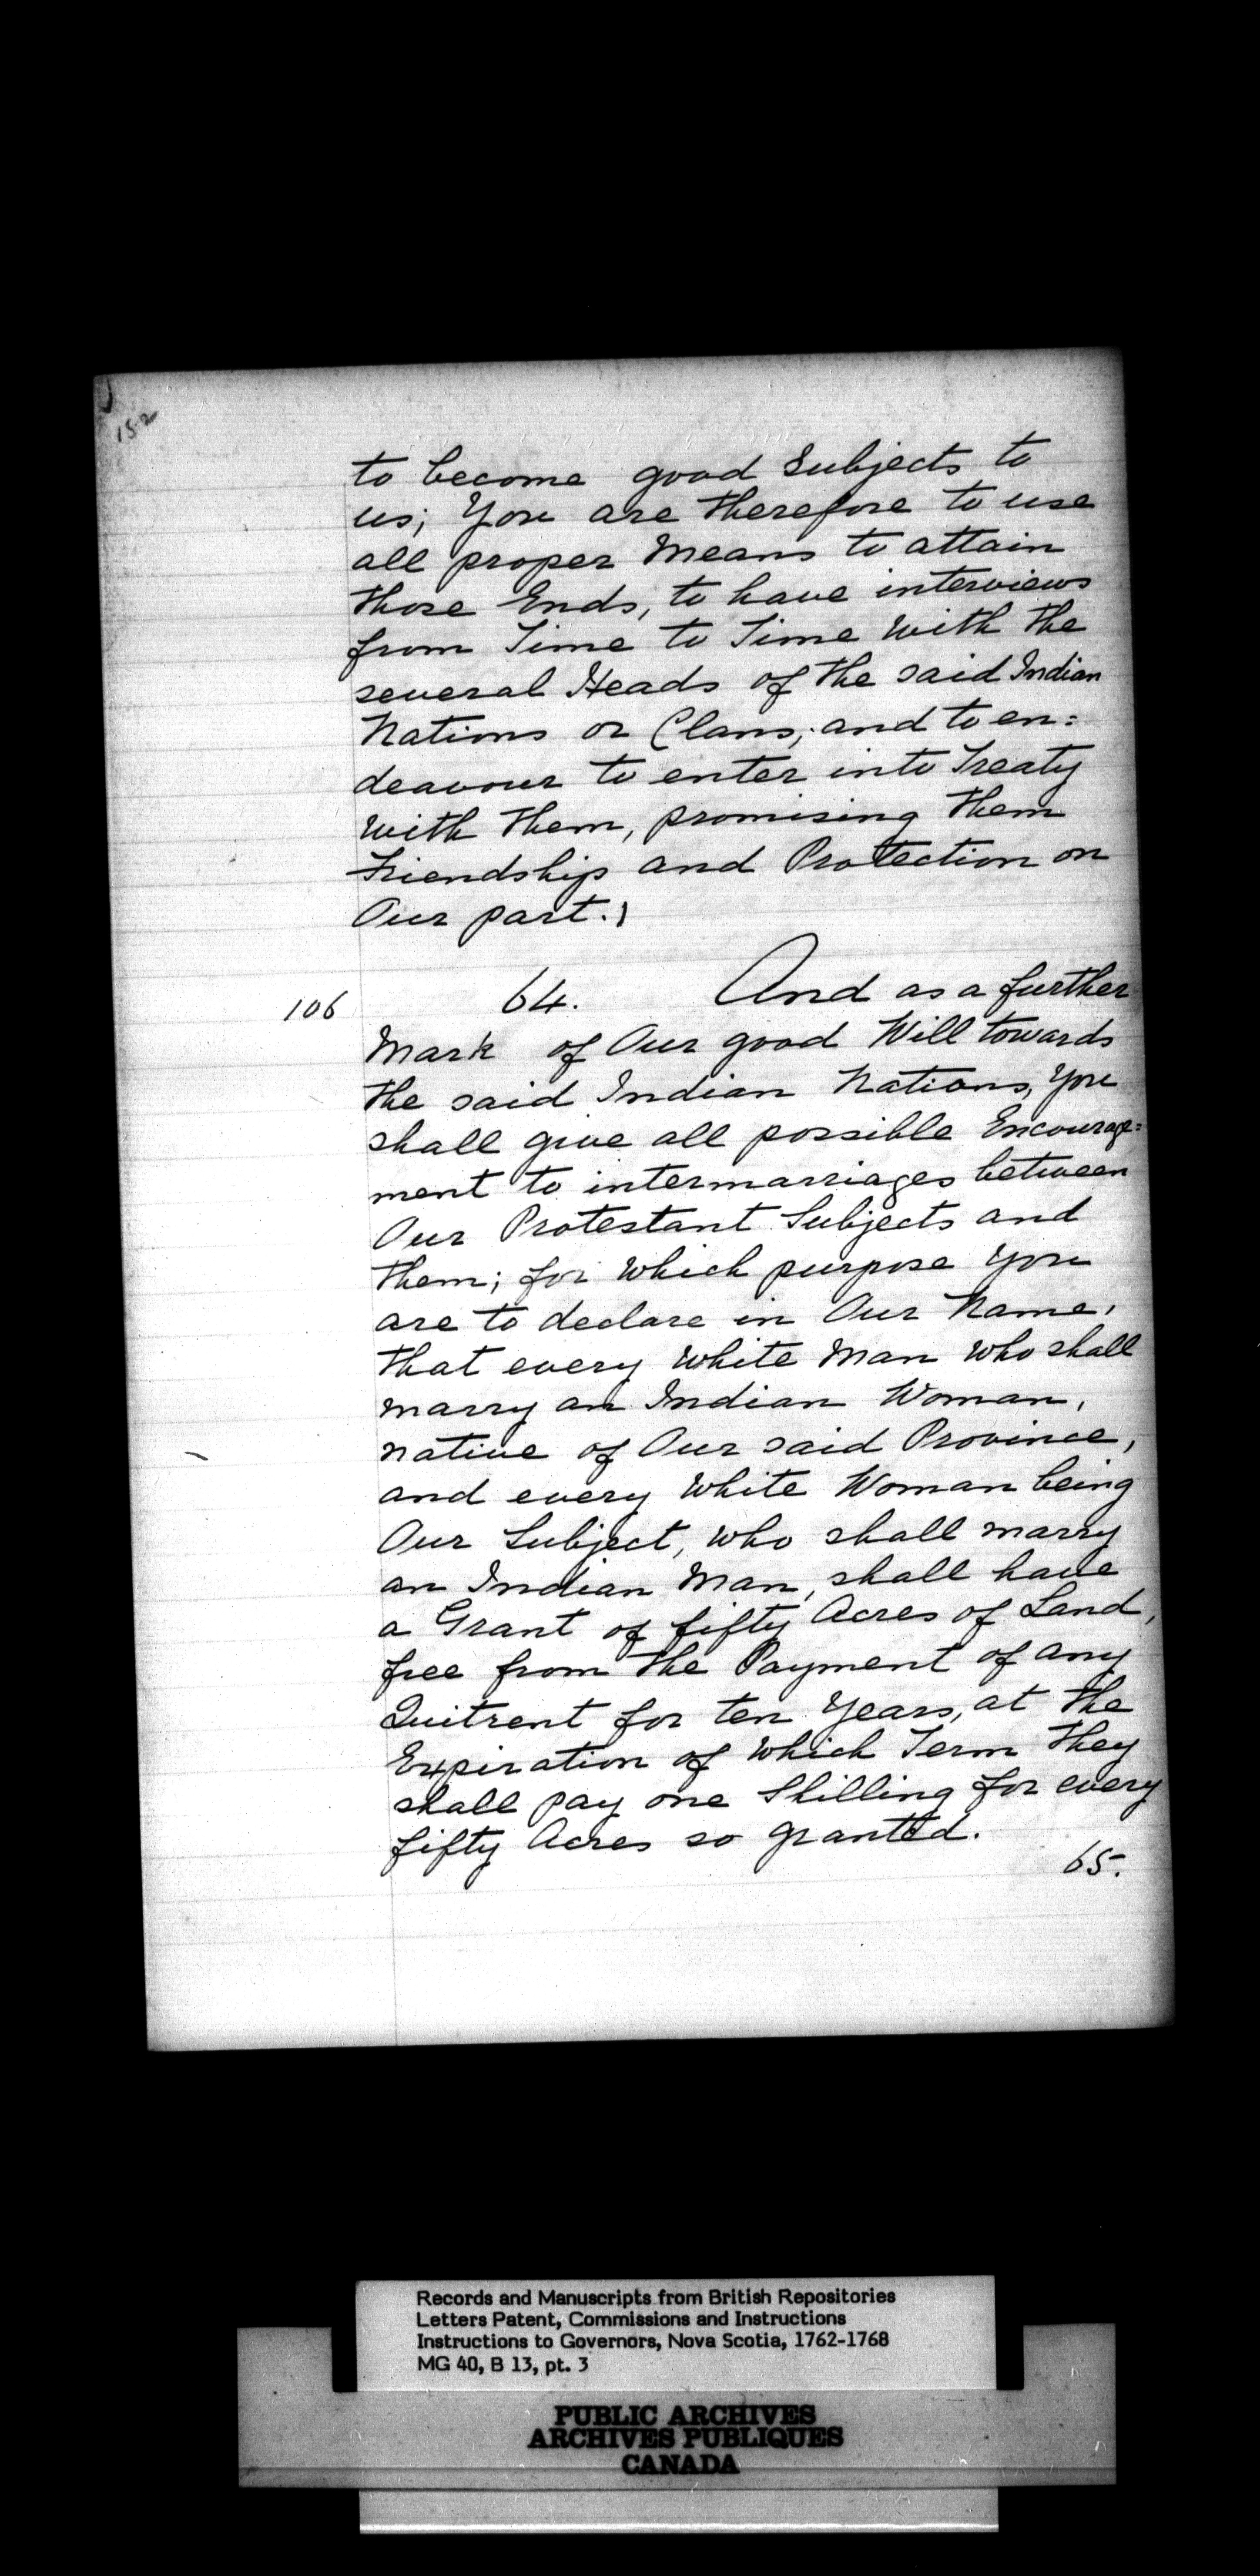 152
to become good Subjects to
us; You are therefore to use
all proper Means to attain
those Ends, to have interviews
from Time to Time with the
several Heads of the said Indian
Nations or Clans, and to en=
deavour to enter into Treaty
with them, promising them
Friendship and Protection on
Our part.
106 64. And as a further
Mark of Our good Will towards
the said Indian Nations, You
shall give all possible Encourage=
ment to intermarriages between
Our Protestant Subjects and
them; for which purpose you
are to declare in Our Name,
that every white Man who shall
marry an Indian Woman,
native of Our said Province,
and every white Woman being
Our Subject, who shall marry
an Indian Man, shall have
a Grant of fifty Acres of Land,
free from the Payment of any
Quitrent for ten Years, at the
Expiration of which Term they
shall pay one Shilling for every
fifty Acres so granted.
65.
Records and Manuscripts from British Repositories
Letters Patent, Commissions and Instructions
Instructions to Governors, Nova Scotia, 1762-1768
MG 40, B 13, pt. 3
PUBLIC ARCHIVES
ARCHIVES PUBLIQUES
CANADA